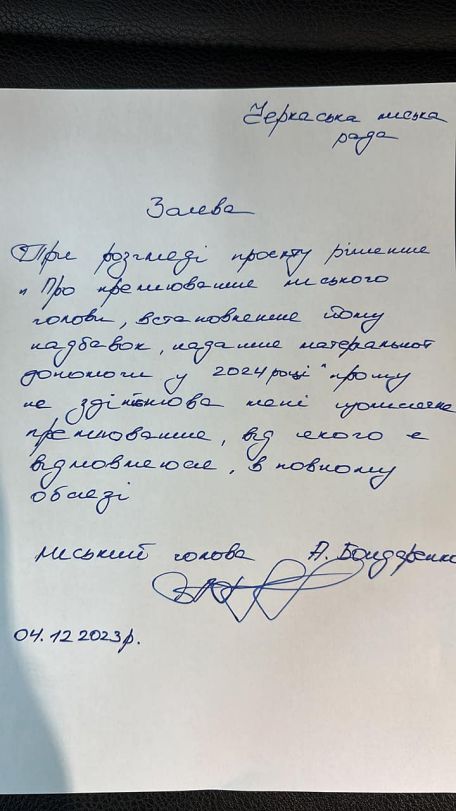 Черкаська міська
рада
Заява
При розгляді проєкту рішення
"Про преміювання міського
голови, встановлення йому
надбавок, надання матеріальної
допомоги у 2024 році" прошу
не здійснюва мені щомісячне
преміювання, від якого я
відмовляюся, в повному
обсязі
Міський голова А. Бондаренко
04.12.2023р.